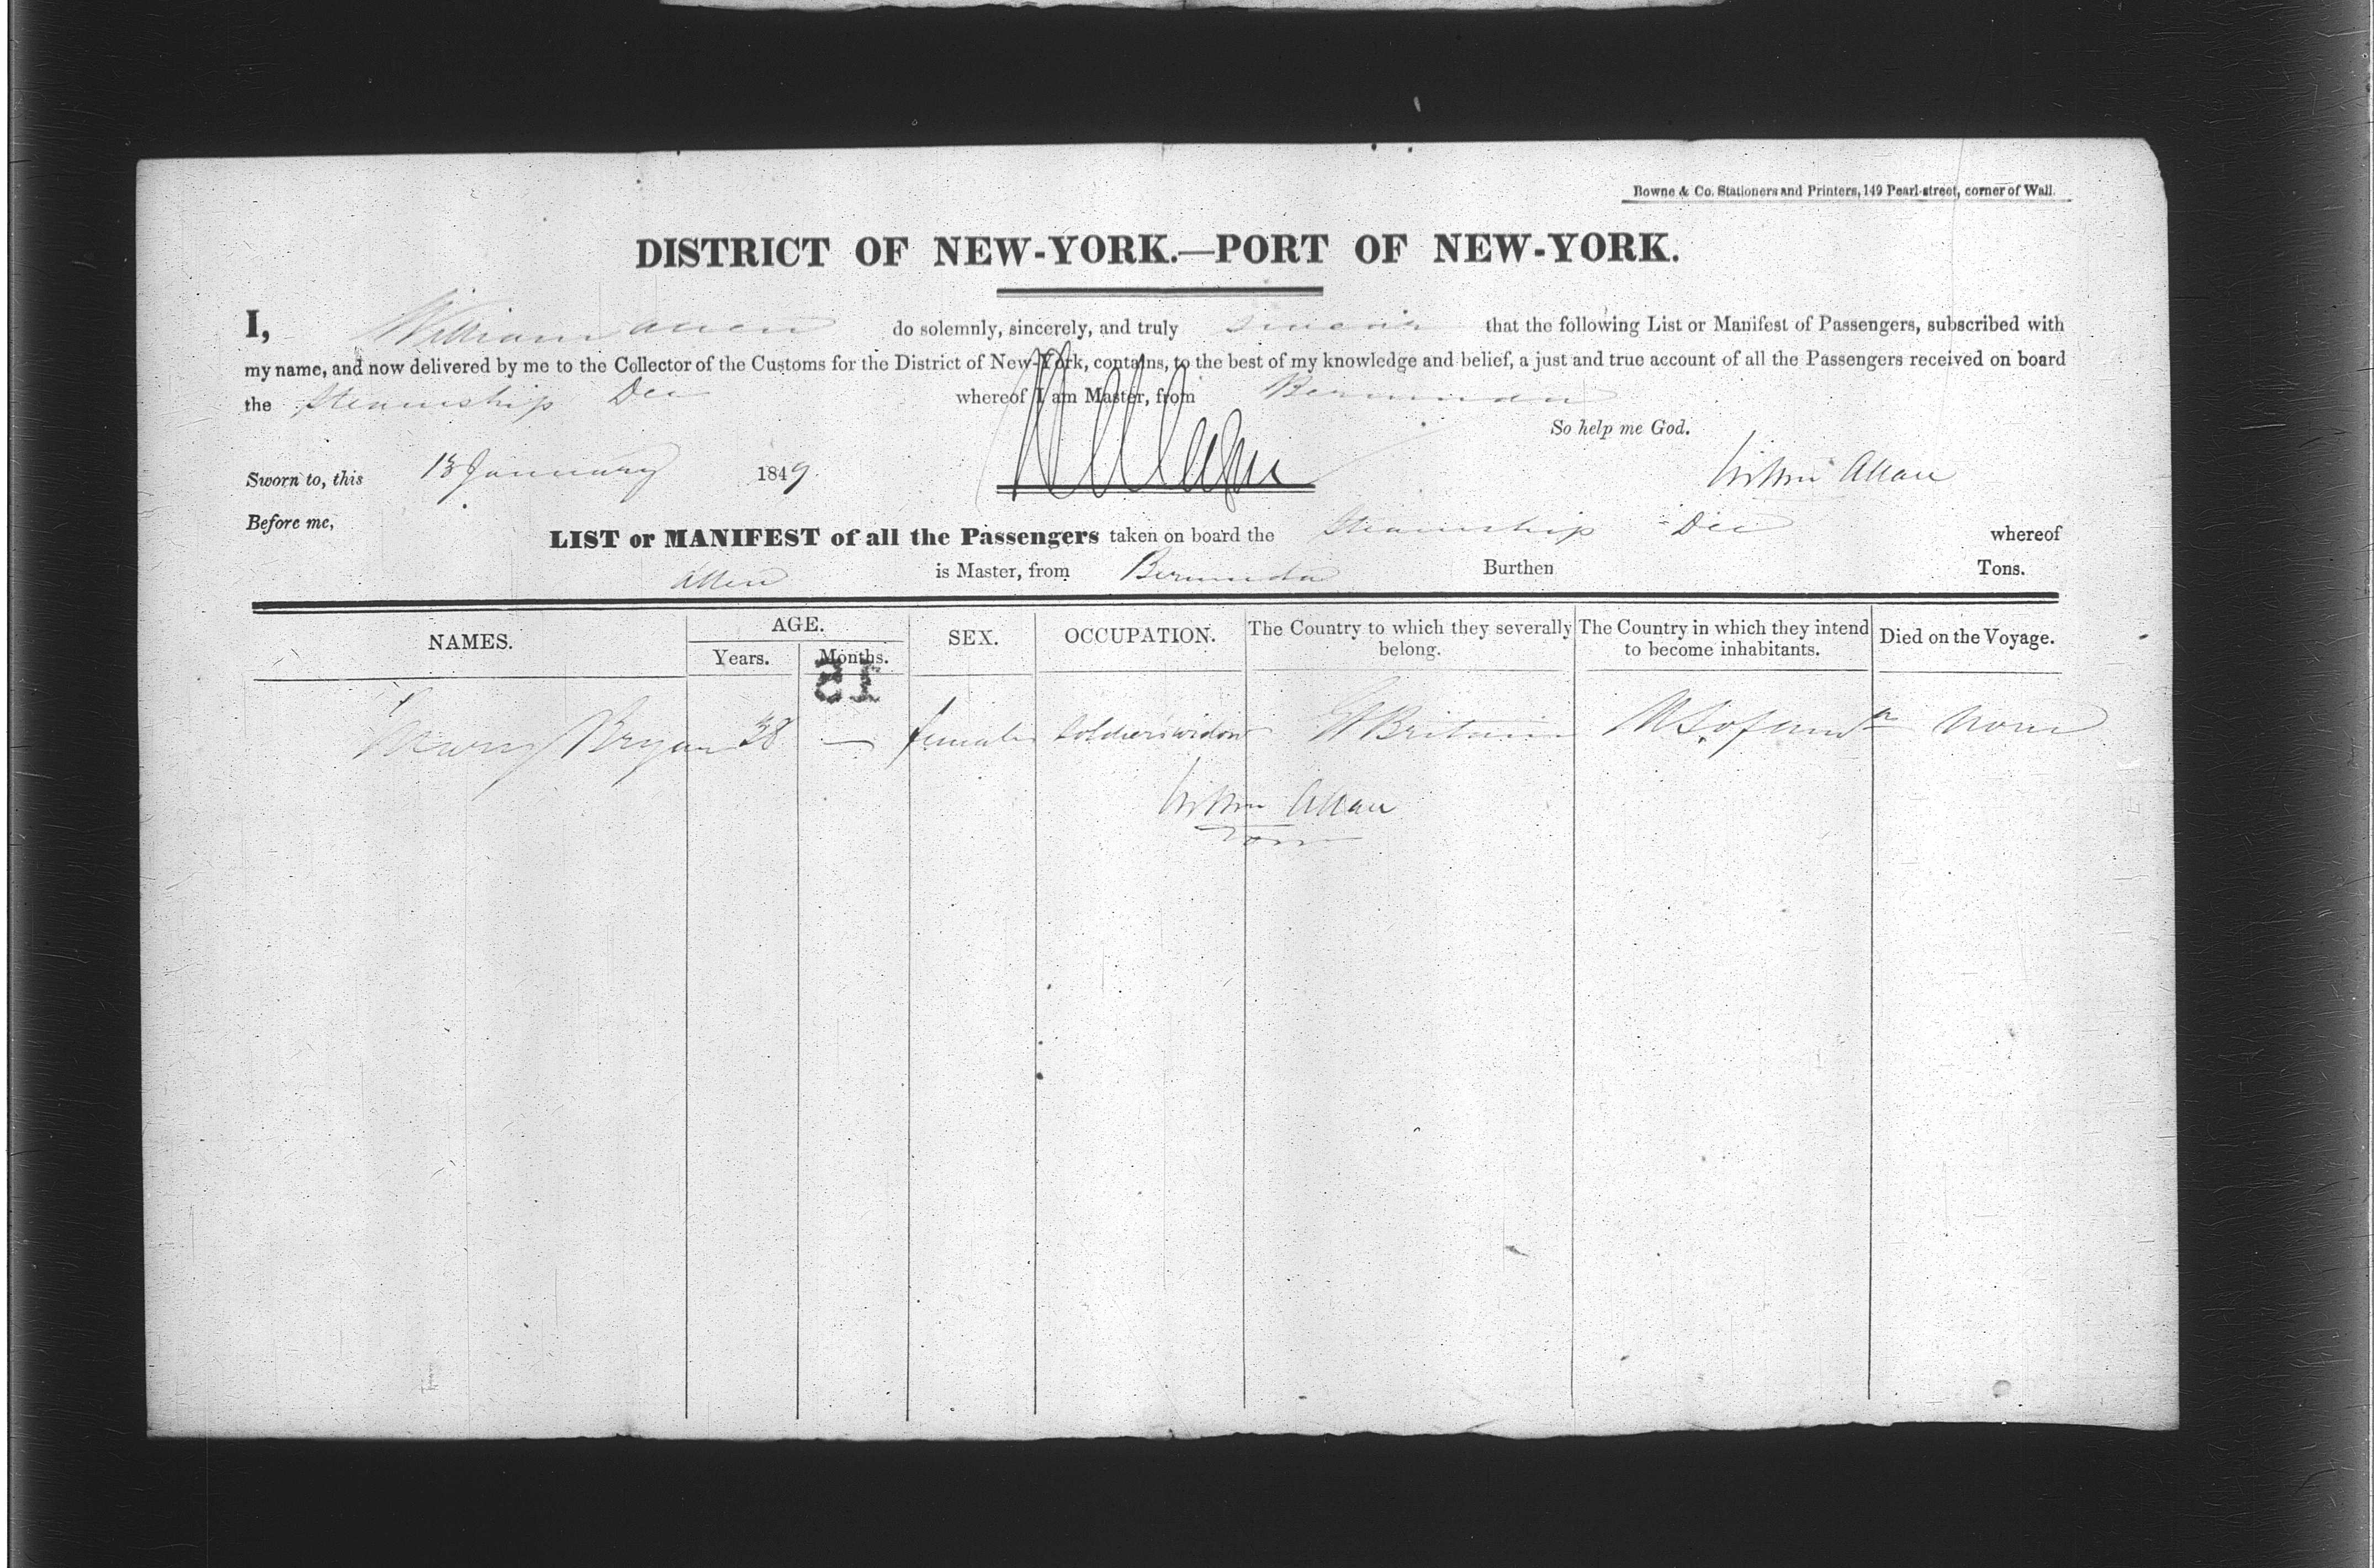 Bowne & Co. Stationers and Printers, 149 Pearl-street, corner of Wall.
DISTRICT OF NEW-YORK.—PORT OF NEW-YORK.
I, William Allen do solemnly, sincerely, and truly swear that the following List or Manifest of Passengers, subscribed with
my name, and now delivered by me to the Collector of the Customs for the District of New-York, contains, to the best of my knowledge and belief, a just and true account of all the Passengers received on board
the Steamship Dee whereof I am Master, from Bermuda
So help me God.
Sworn to, this 13 January 1849.
Willm Allan
Before me,
LIST or MANIFEST of all the Passengers taken on board the Steamship Dee whereof
Allen is Master, from Bermuda Burthen Tons.
NAMES. AGE. SEX. OCCUPATION. The Country to which they severally belong. The Country in which they intend to become inhabitants. Died on the Voyage.
Years. Months.
15
Bryan 38 — female Soldiers widow Gt Britain U S of Am a None
Willm Allan